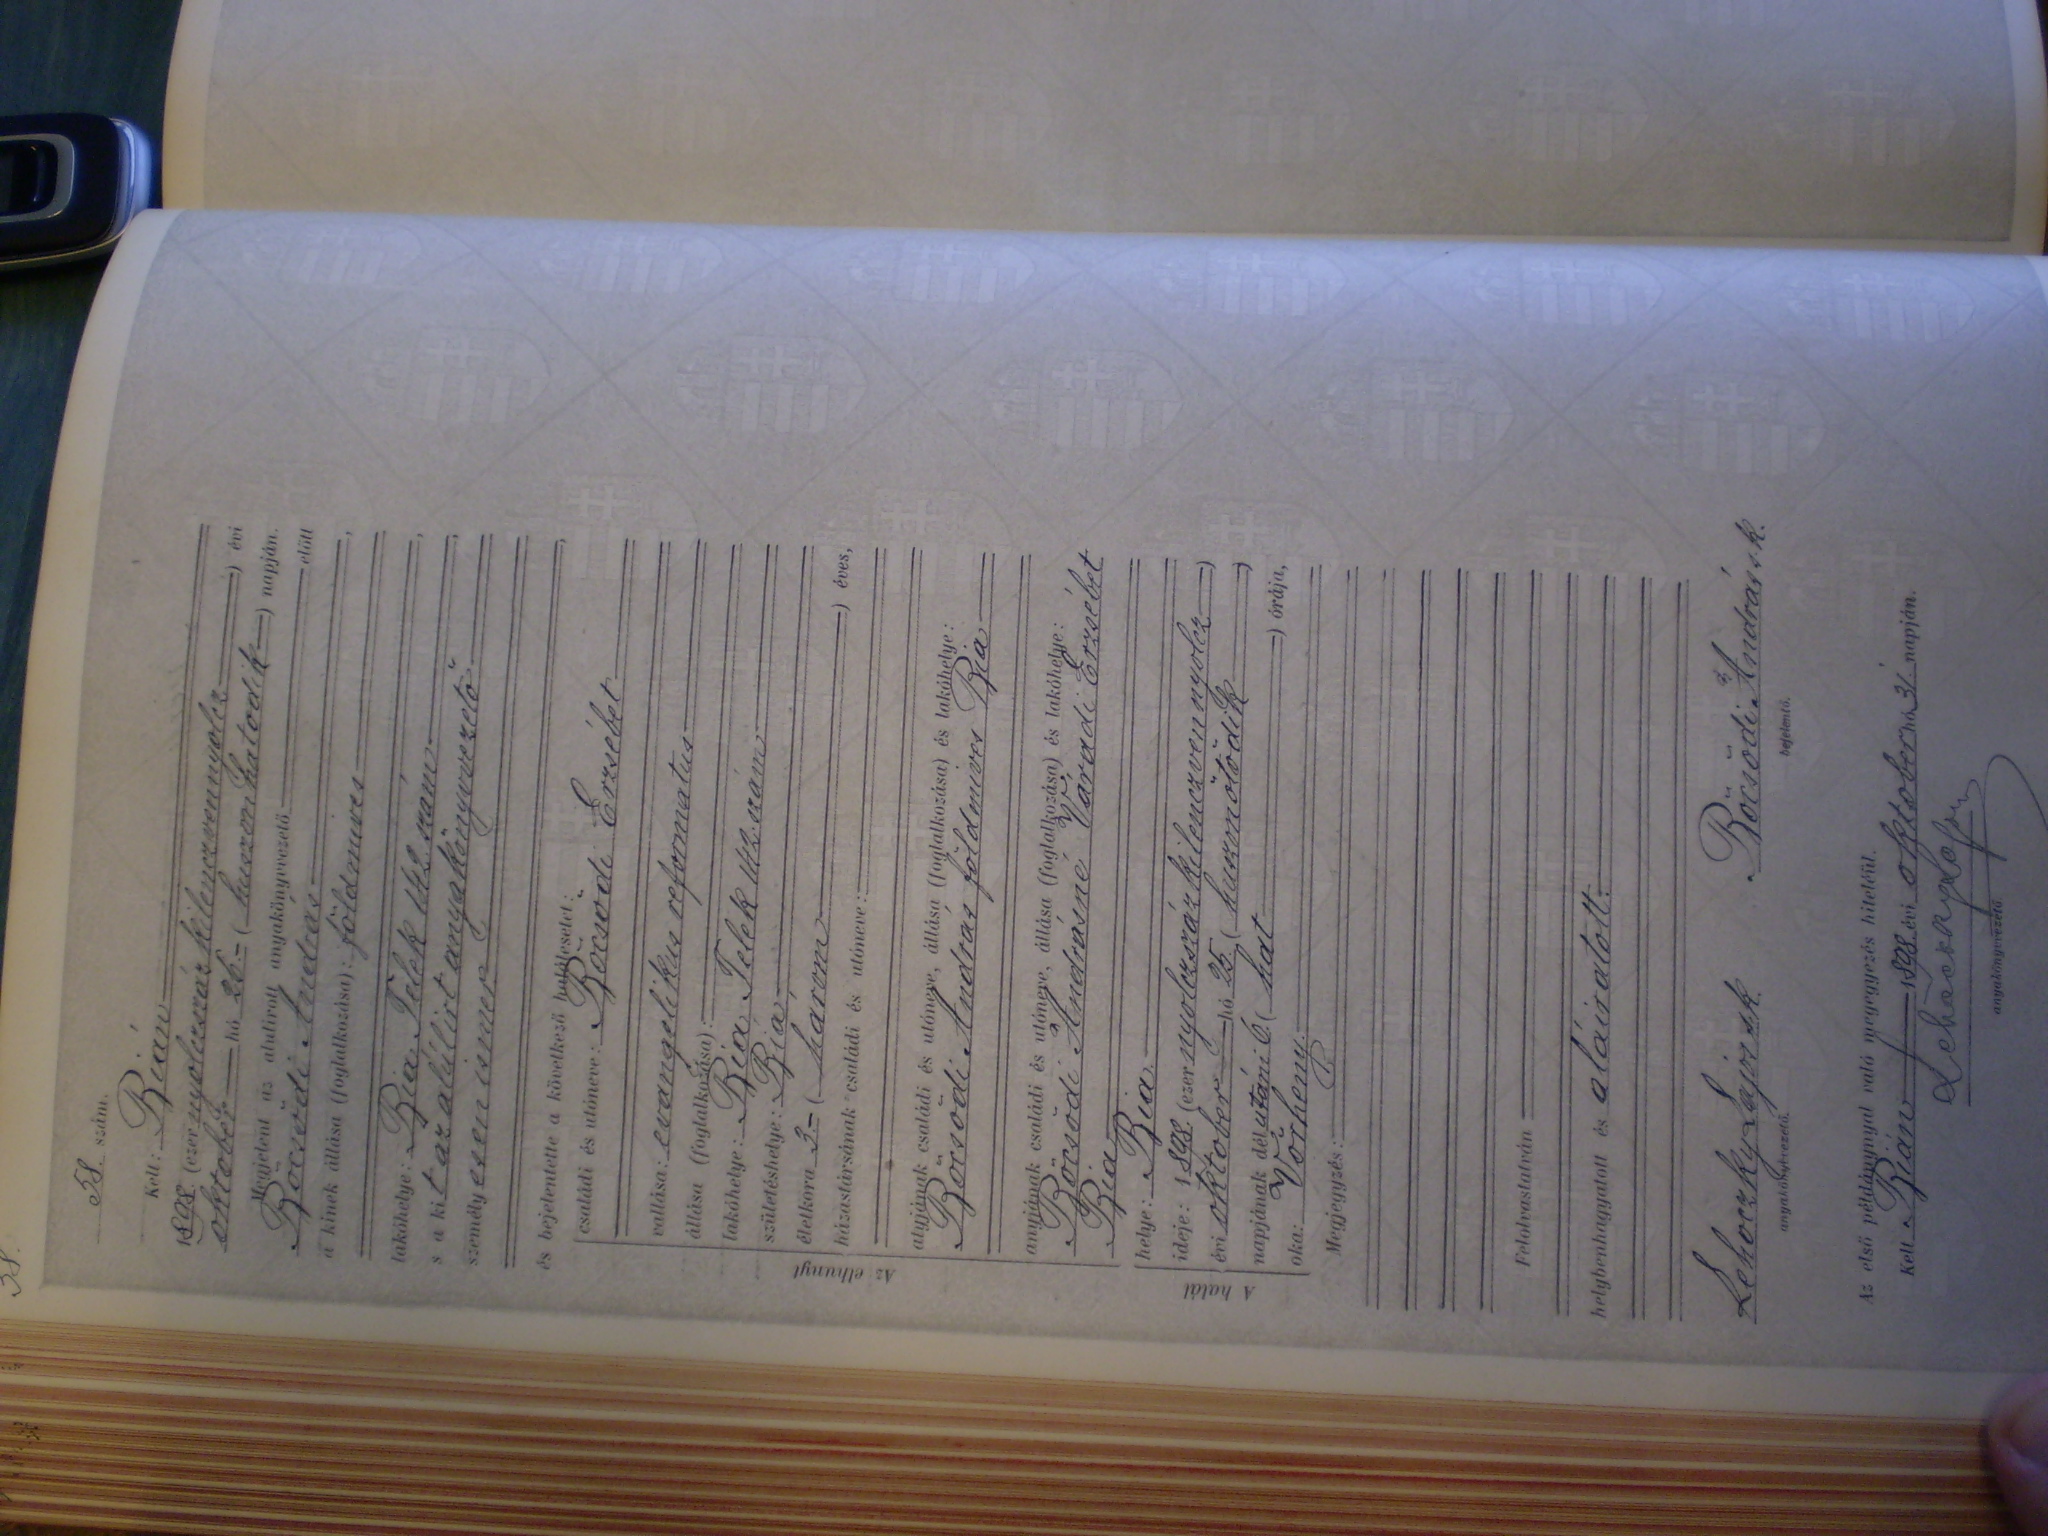 58.
58. szám.
Kelt: Bián
1898. (ezernyolczszázkilenczvennyolcz) évi
október hó 26. (huszonhatodik) napján.
Megjelent az alulirott anyakönyvezető előtt
Böcsödi András
a kinek állása (foglalkozása): földmives
lakóhelye: Bia Telek 142. szám,
s a kit az alálirt anyakönyvvezető
személyesen ismer,
és bejelentette a következő halálesetet:
családi és utóneve: Böcsödi Erzsébet
vallása: evangelikus reformatus
állása (foglalkozása):
lakóhelye: Bia Telek 142. szám
születéshelye: Bia
életkora 3 (három) éves,
házastársának családi és utóneve:
atyjának családi és utóneve, állása (foglalkozása) és lakóhelye:
Böcsödi András földmives Bia
anyjának családi és utóneve, állása (foglalkozása) és lakóhelye:
Böcsödi Andrásné Váradi Erzsébet
Bia
Az elhunyt
helye: Bia
ideje: 1898. (ezernyolczszázkilenczvennyolcz)
évi október hó 25. (huszonötödik)
napjának délutáni 6. (hat) órája,
oka: Vörheny.
A halál
Megjegyzés:
Felolvastatván
helybenhagyatott és aláiratott.
Lehoczky Lajos sk. Böcsödi András s. k.
anyakönyvezető. bejelentő.
Az első példánynyal való megegyezés hiteléül.
Kelt Bián 1898. évi október hó 31. napján.
Lehoczky Lajos
anyakönyvezető.